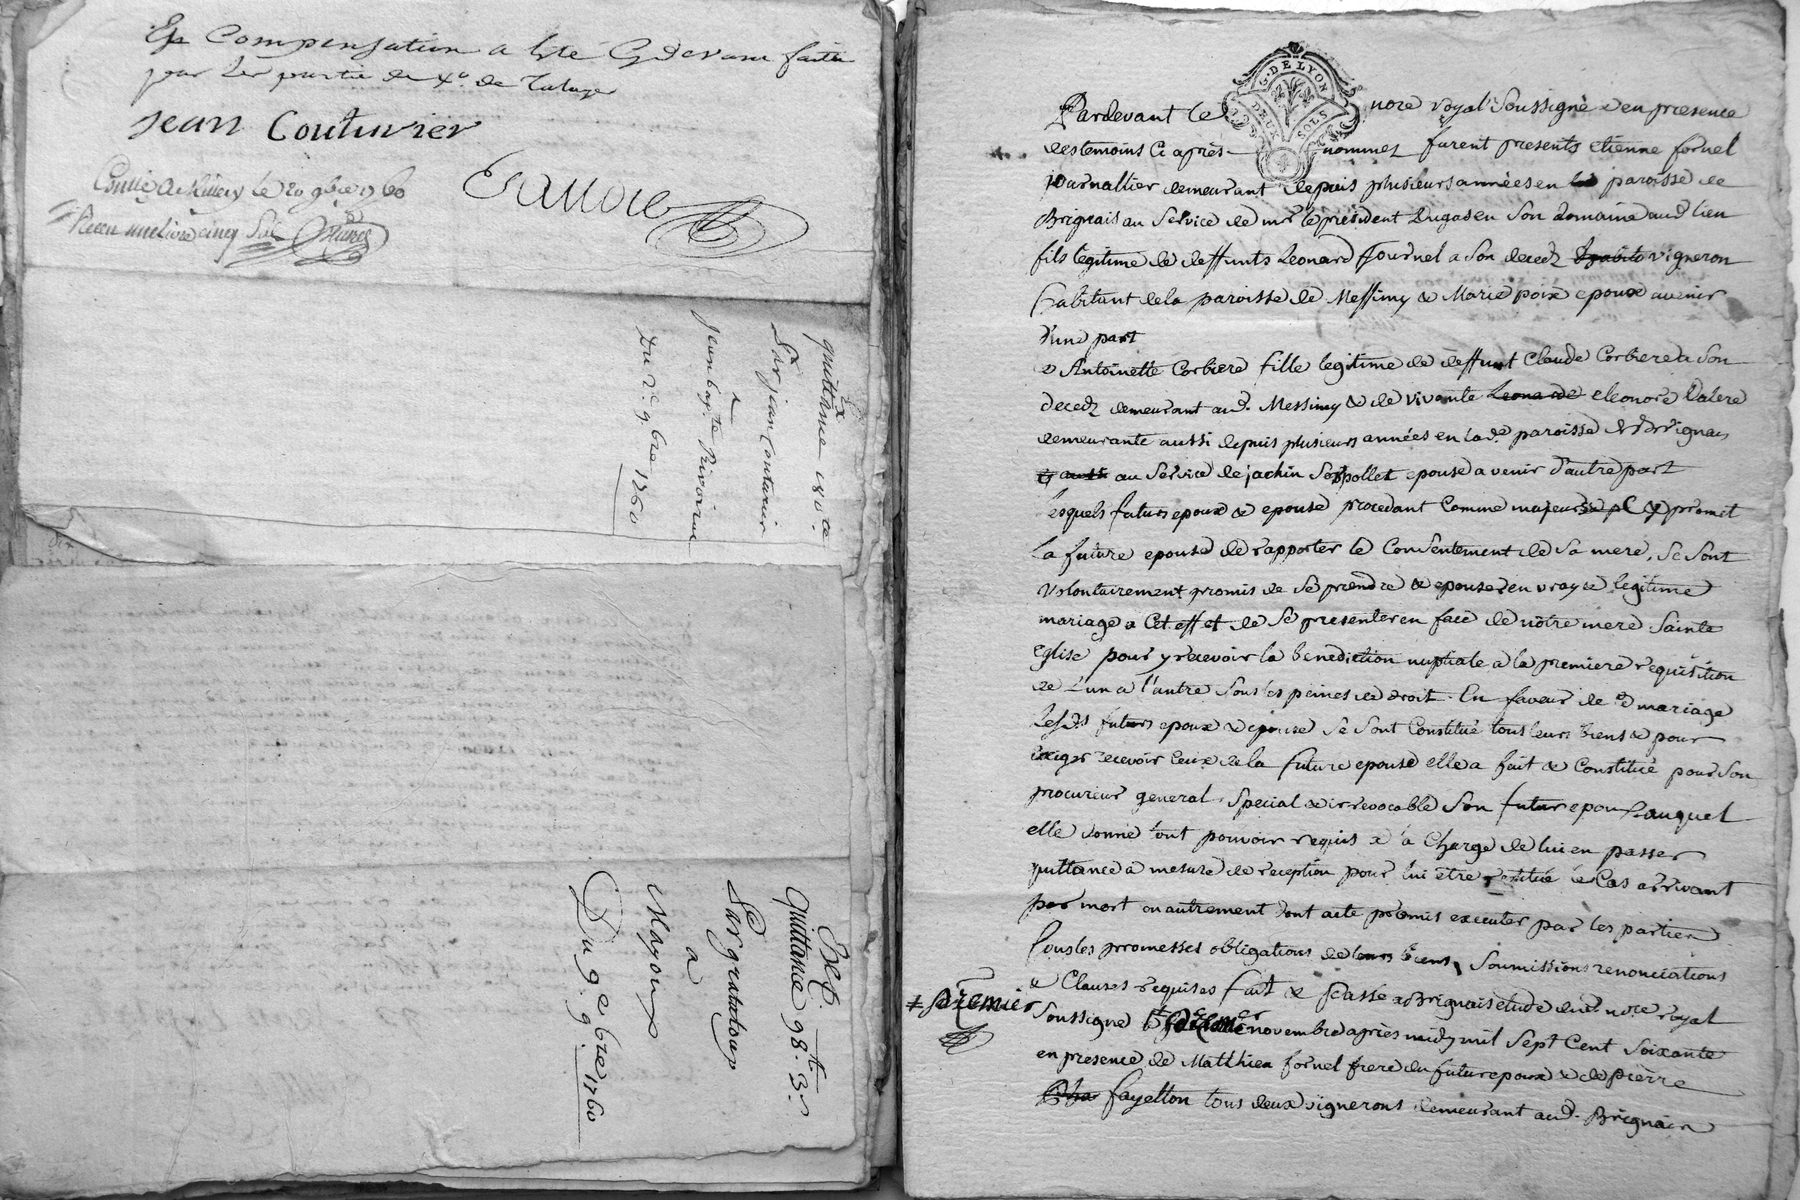 En Compensation a
par les partie de
Jean Coutuvier
Controlé a le 20 9bre 1760
Recu une livre cinq Sols
Exp
quittance 180# ce
Par jean Couturier
a
jean bap.te Privoirue
Du 2e 9bre 1760
Rec.
quittance 98# 3s
Par gratalou
a
Mayoux
Du 9e 9bre 1760
G. DE LYON
DEUX SOLS
Pardevant le nore royal Soussigné & en presence
des temoins Ci après nommez furent presents etienne fornel
journallier demeurant depuis plusieurs années en la paroisse de
Brignais au Service de mr le president Dugas en Son domaine aud lien
fils legitime de deffunts Leonard fournel a Son decedz vigneron
habitant de la paroisse de Messimy & Marie poix epoux avenir
d'une part
& Antoinette Corbiere fille legitime de deffunt Claude Corbiere a Son
decedz demeurant aud. Messimy & de vivante Leonarde eleonore Valere
demeurante aussi depuis plusieurs années en lade paroisse de Brignais
au Service de jachin epouse a venir d'autre part
lesquels futurs epoux & epouse procedant Comme majeurs promit
la future epouse de rapporter le Consentement de Sa mere, Se Sont
volontairement promis de Se prendre & epouser en vraye legitime
mariage a Cet effet de Se presenter en face de nôtre mere Sainte
Eglise pour y recevoir la benediction nuptiale a la premiere requisition
de l'un a l'autre Sous les peines de droit. En faveur de cd mariage
Lesds futurs epoux & epouse Se Sont Constitué tous leurs biens & pour
exiger recevoir Ceux de la future epouse elle a fait & Constitué pour Son
procureur general, Special & irrevocable Son futur epoux auquel
elle donne tout pouvoir requis & à Charge de lui en passer
quittance a mesure de reception pour lui être restitué le Cas arrivant
par mort ou autrement dont acte promis executer par les parties
Sous les promesses obligations de leurs biens, Soumissions renonciations
& Clauses requises fait & passé a Brignais etude dud nore royal
≠ premier
Soussigné le novembre après midy mil Sept Cent Soixante
en presence de Matthieu fornel frere du futur epoux & de pierre
fayetton tous deux vignerons demeurant aud. Brignais